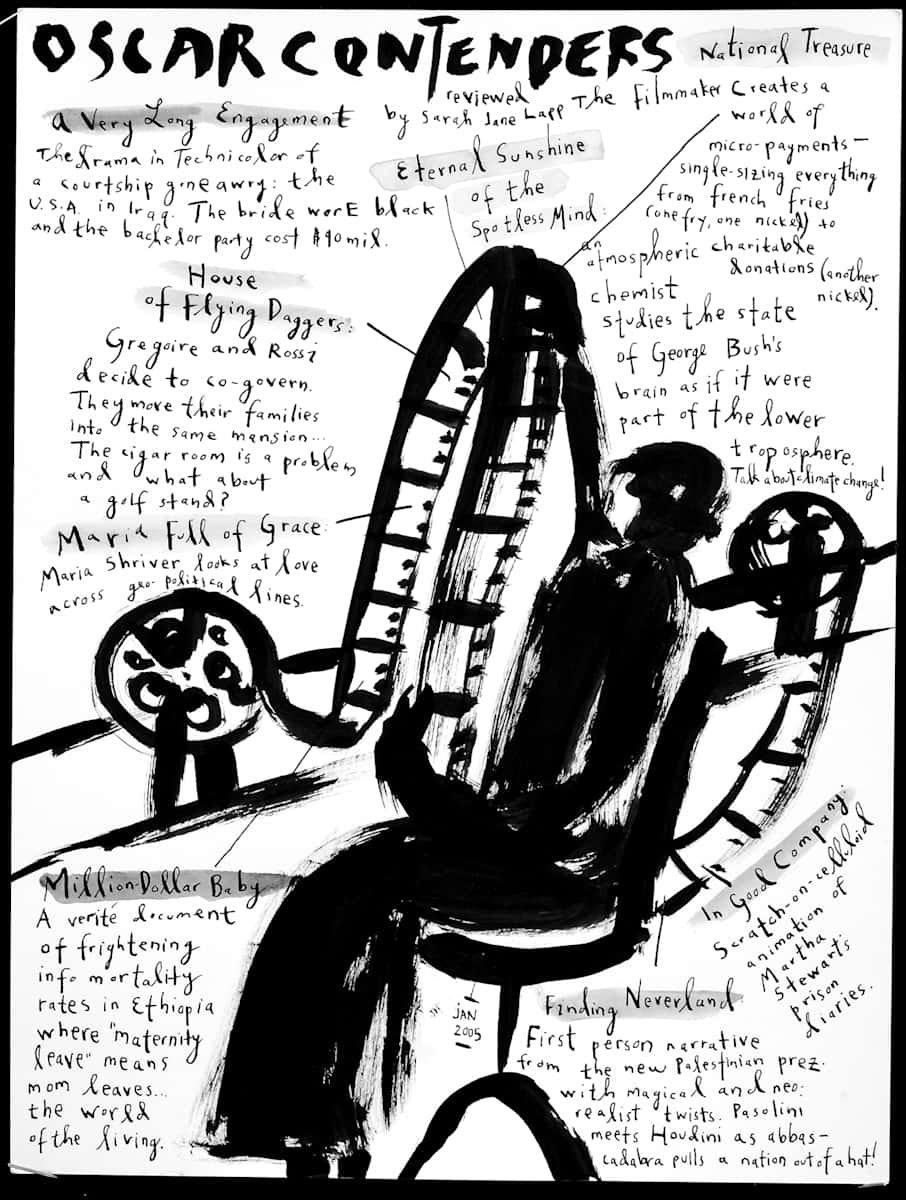 OSCAR CONTENDERS
reviewed
by Sarah Jane Lapp
A Very Long Engagement
The drama in Technicolor of
a courtship gone awry: the
U.S.A. in Iraq. The bride worE black
and the bachelor party cost $40 mil.
National Treasure
The Filmmaker Creates a
world of
micro-payments—
single-sizing everything
from french fries
(one fry, one nickel) to
charitable
donations (another
nickel).
Eternal Sunshine
of the
Spotless Mind:
an
atmospheric
chemist
studies the state
of George Bush's
brain as if it were
part of the lower
troposphere.
Talk about climate change!
House
of Flying Daggers:
Gregoire and Rossi
decide to co-govern.
They move their families
into the same mansion...
The cigar room is a problem
and what about
a golf stand?
Maria Full of Grace:
Maria Shriver looks at love
across geo-political lines.
Million-Dollar Baby
A verité document
of frightening
info mortality
rates in Ethiopia
where "maternity
leave" means
mom leaves...
the world
of the living.
In Good Company:
Scratch-on-celluloid
animation of
Martha
Stewart's
prison
diaries.
JAN
2005
Finding Neverland:
First person narrative
from the new Palestinian prez.
with magical and neo-
realist twists. Pasolini
meets Houdini as abbas-
cadabra pulls a nation out of a hat!